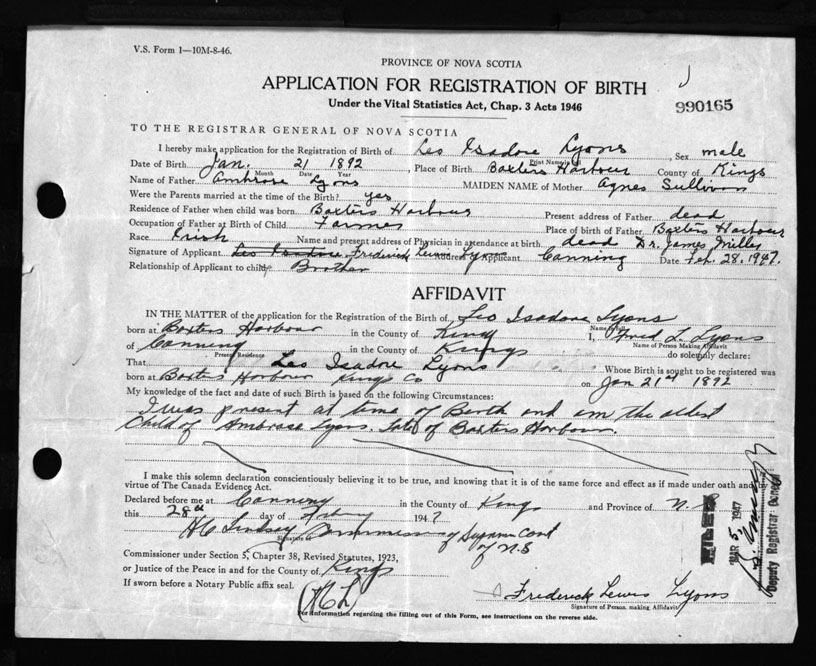 V.S. Form 1—10M-8-46.
PROVINCE OF NOVA SCOTIA
APPLICATION FOR REGISTRATION OF BIRTH
Under the Vital Statistics Act, Chap. 3 Acts 1946
990165
TO THE REGISTRAR GENERAL OF NOVA SCOTIA
I hereby make application for the Registration of Birth of Leo Isadore Lyons, Sex male
Print Name in full
Date of Birth Jan. 21 1892, Place of Birth Baxters Harbour County of Kings
Month Date Year
Name of Father Ambrose Lyons MAIDEN NAME of Mother Agnes Sullivan
Were the Parents married at the time of the Birth? yes
Residence of Father when child was born Baxters Harbour Present address of Father dead
Occupation of Father at Birth of Child Farmer Place of birth of Father Baxters Harbour
Race Irish Name and present address of Physician in attendance at birth dead Dr. James Miller
Signature of Applicant Leo Isadore Frederick Lewis Lyons Address of Applicant Canning Date Feb. 28. 1947.
Relationship of Applicant to child Brother
AFFIDAVIT
IN THE MATTER of the application for the Registration of the Birth of Leo Isadore Lyons
Name in full
born at Baxters Harbour in the County of Kings I, Fred L. Lyons
Name of Person Making Affidavit
of Canning in the County of Kings do solemnly declare:
Present Residence
That Leo Isadore Lyons Whose Birth is sought to be registered was
born at Baxters Harbour Kings Co on Jan 21st 1892
My knowledge of the fact and date of such Birth is based on the following Circumstances:
I was present at time of Berth and am the oldest
Child of Ambrose Lyons. Late of Baxters Harbour.
I make this solemn declaration conscientiously believing it to be true, and knowing that it is of the same force and effect as if made under oath and by
virtue of The Canada Evidence Act.
Declared before me at Canning in the County of Kings and Province of N.S
this 28th day of 1947
HC Lindsay Commissioner of Supreme Court
of N.S
Signature of
Commissioner under Section 5, Chapter 38, Revised Statutes, 1923,
or Justice of the Peace in and for the County of Kings
If sworn before a Notary Public affix seal.
Frederick Lewis Lyons
Signature of Person making Affidavit
For information regarding the filling out of this Form, see instructions on the reverse side.
FILED
MAR 5, 1947
Deputy Registrar General